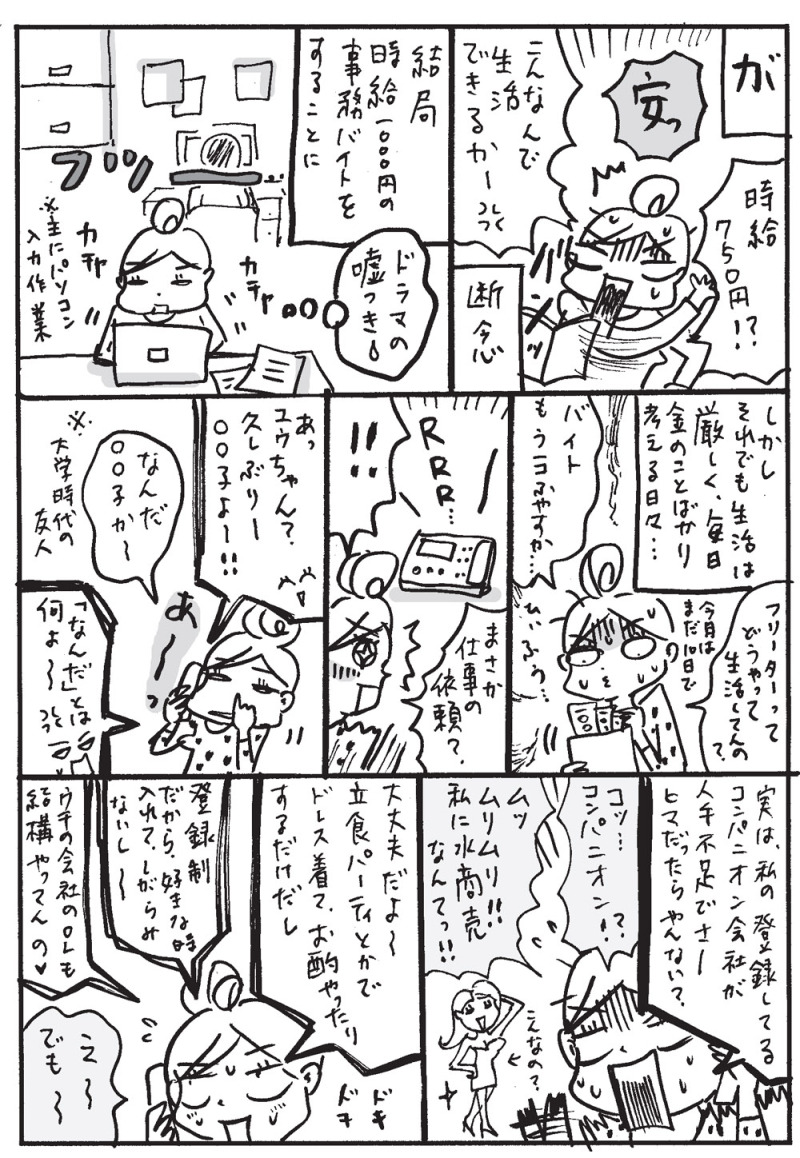 が
安っ
時給
750円!?
こんなんで
生活
できるかーっ
断念
結局
時給一〇〇〇円の
事務バイトを
することに
ドラマの
嘘つき
カチャ
カチャ
ブツ
※主にパソコン
入力作業
しかし
それでも生活は
厳しく、毎日
金のことばかり
考える日々…
フリーターって
どうやって
生活してんの?
今月は
まだ10日で
バイト
もう一コふやすか…
ひいふう…
RRR…
!!
まさか
仕事の
依頼?
あっ
ユウちゃん?
久しぶりー
〇〇子よ〜!!
なんだ
〇〇子か〜
※
大学時代の
友人
あ〜っ
「なんだ」とは
何よ〜っ
実は、私の登録してる
コンパニオン会社が
人手不足でさー
ヒマだったらやんない?
コッ…
コンパニオン!?
ムッ
ムリムリ!!
私に水商売
なんてっ!!
こんなの?
大丈夫だよ〜
立食パーティとかで
ドレス着て、お酌やったり
するだけだし
登録制
だから、好きな時
入れて、しがらみ
ないし〜
ウチの会社のOLも
結構やってんの♥
ドキ
ドキ
え〜
でも〜